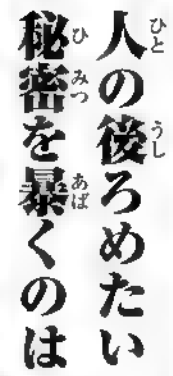 人の後ろめたい
秘密を暴くのは